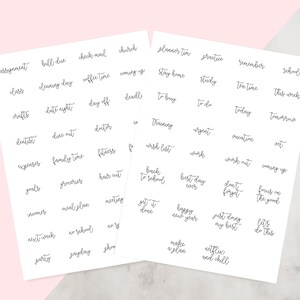 assignment bill due check mail church
class cleaning day coffee time coming up
crafts date night day off deadline
dentist dine out doctor
expenses family time fitness
goals groceries hair cut
income meal plan meeting
next week no school
party payday
planner time practice remember school
stay home study tea time this week
to buy to do today tomorrow
training urgent vacation vet
wish list work work out
back
to school
best day
ever
don't
forget
focus on
the good
get it
done
happy
new year
just doing
my best
let's
do this
make
a plan
netflix
and chill